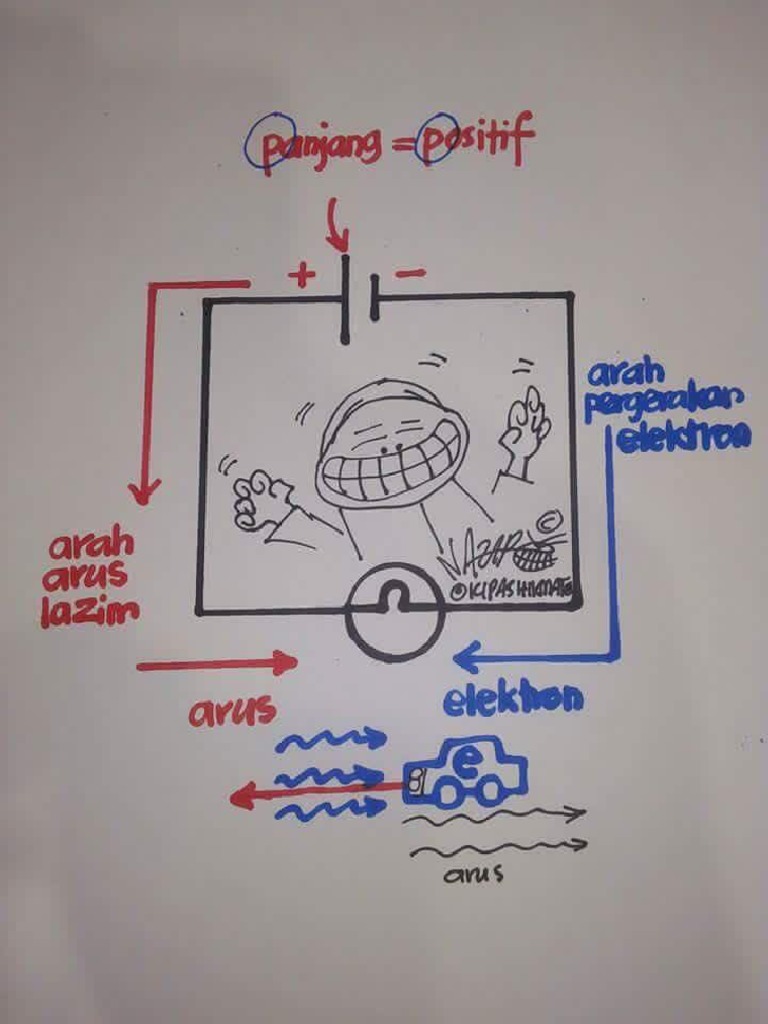 panjang = positif
+ −
arah
pergerakan
elektron
arah
arus
lazim
©
@KIPASHIKMAT
arus
elektron
e
arus